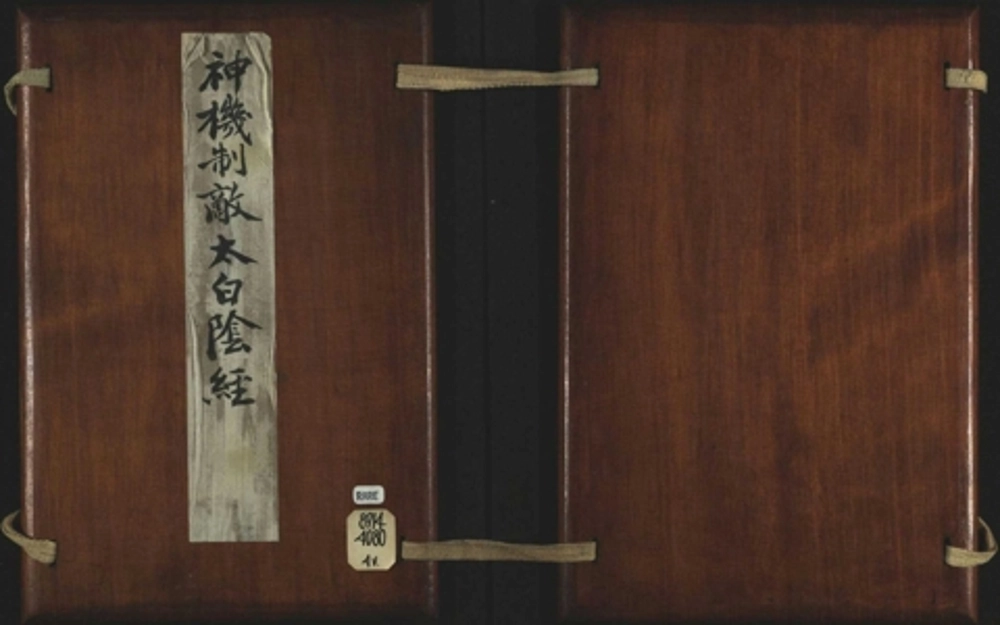 神機制敵太白陰經
RARE
8974
4080
4v.